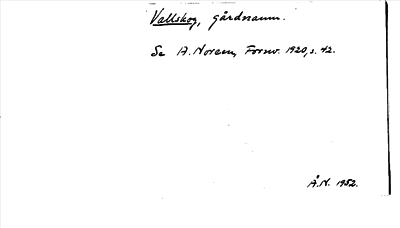 Vallskog, gårdsnamn.
Se A. Noreen, Fornv. 1920, s. 42.
Å.N. 1952.